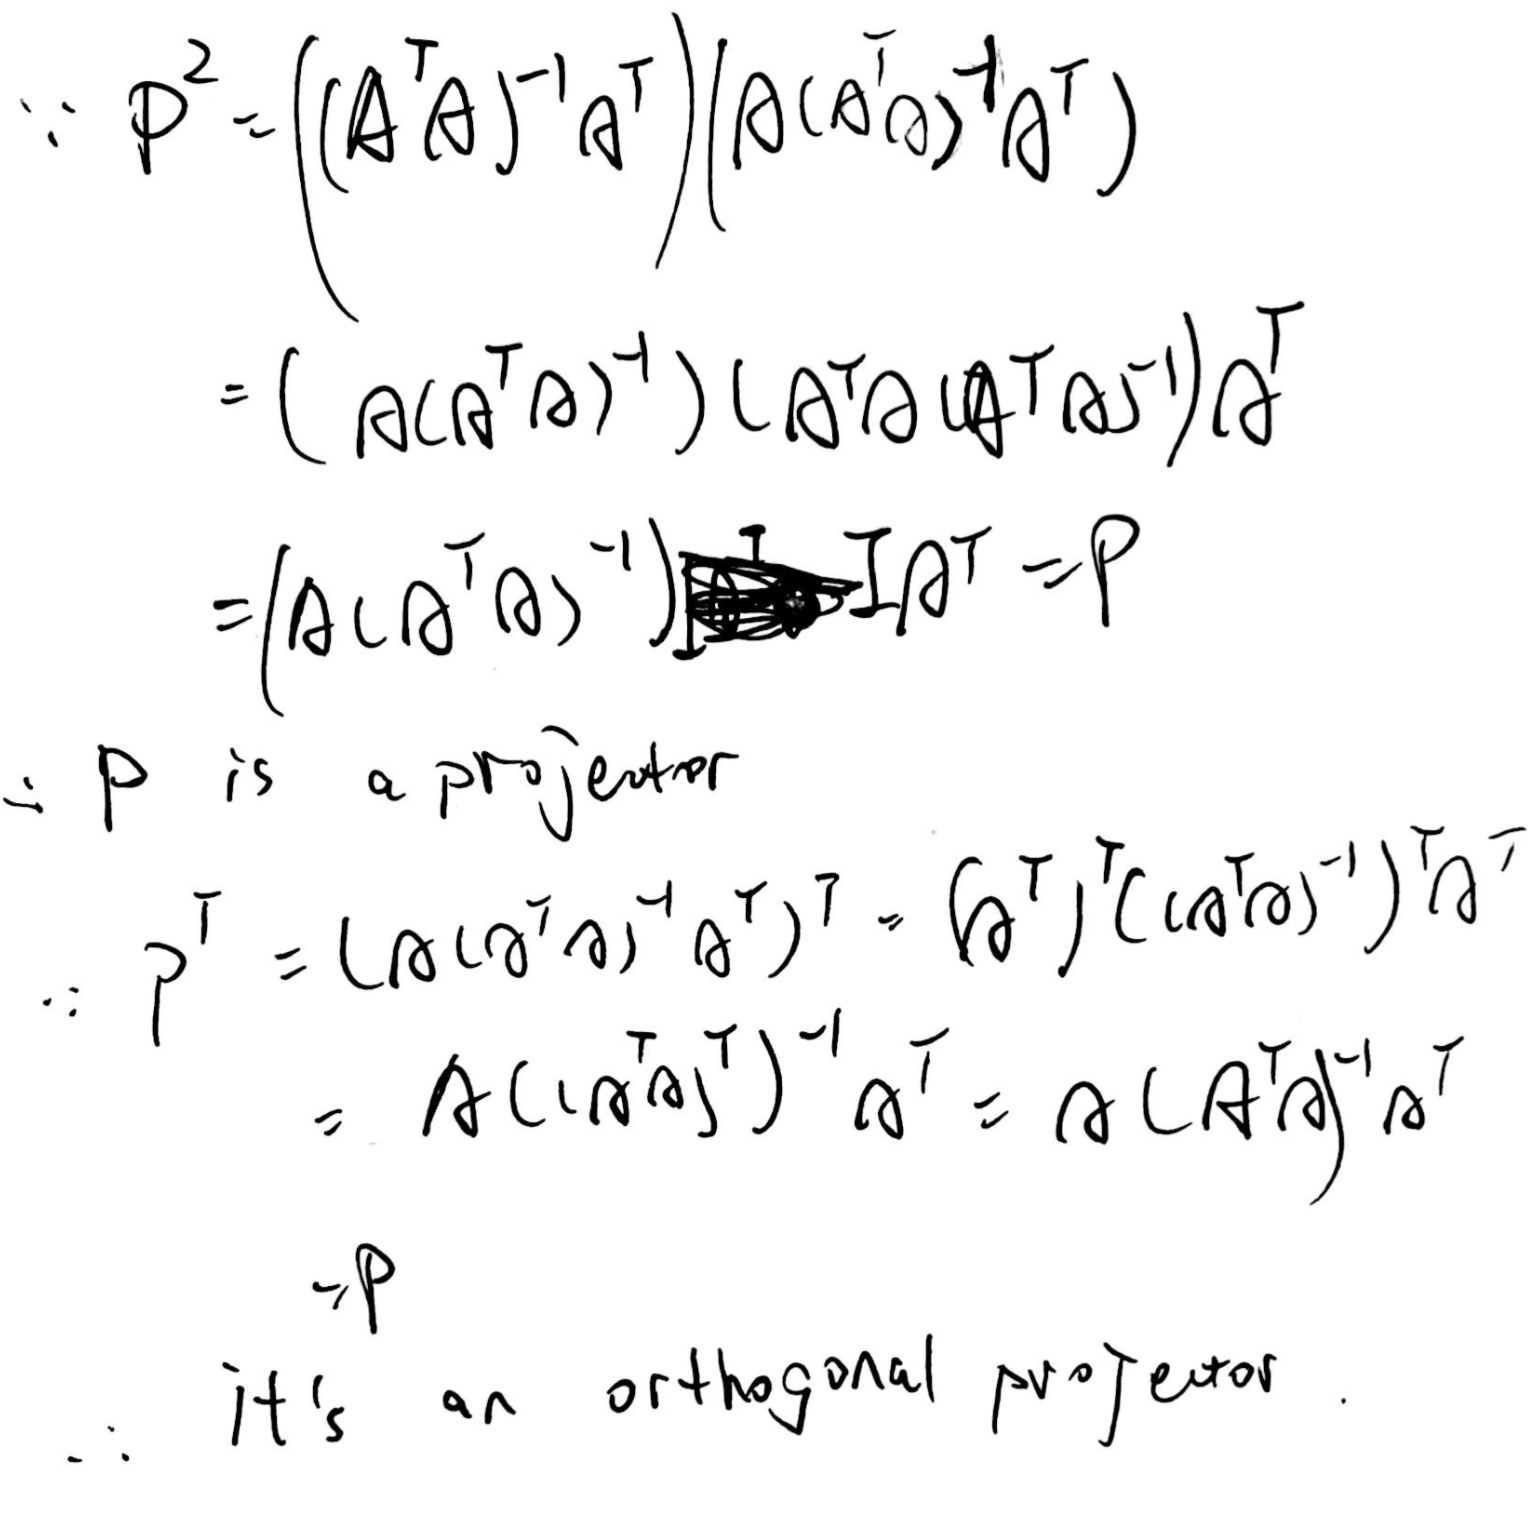 ∵ P² = ((AᵀA)⁻¹Aᵀ)(A(AᵀA)⁻¹Aᵀ)
= (A(AᵀA)⁻¹)(AᵀA(AᵀA)⁻¹)Aᵀ
= (A(AᵀA)⁻¹) I Aᵀ = P
∴ P is a projector
∵ Pᵀ = (A(AᵀA)⁻¹Aᵀ)ᵀ = (Aᵀ)ᵀ((AᵀA)⁻¹)ᵀAᵀ
= A((AᵀA)ᵀ)⁻¹Aᵀ = A(AᵀA)⁻¹Aᵀ
= P
∴ it's an orthogonal projector.